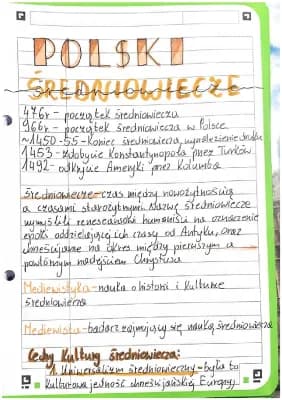 POLSKI
ŚREDNIOWIECZE
Średniowiecze
476r - początek średniowiecza
966r - początek średniowiecza w Polsce
~1450-55 - koniec średniowiecza, wynalezienie druku
1453 - zdobycie Konstantynopola przez Turków
1492 - odkrycie Ameryki przez Kolumba
Średniowiecze - czas między nowożytnością
a czasami starożytnymi. Nazwę średniowiecze
wymyślili renesansowi humaniści na oznaczenie
epoki oddzielającej ich czasy od Antyku, oraz
chrześcijanie na okres między pierwszym a
powtórnym nadejściem Chrystusa
Mediewistyka - nauka o historii i kulturze
średniowiecza
Mediewista - badacz zajmujący się nauką średniowiecza
Cechy kultury średniowiecza:
1. Uniwersalizm średniowieczny - była to
kulturowa jedność chrześcijańskiej Europy.